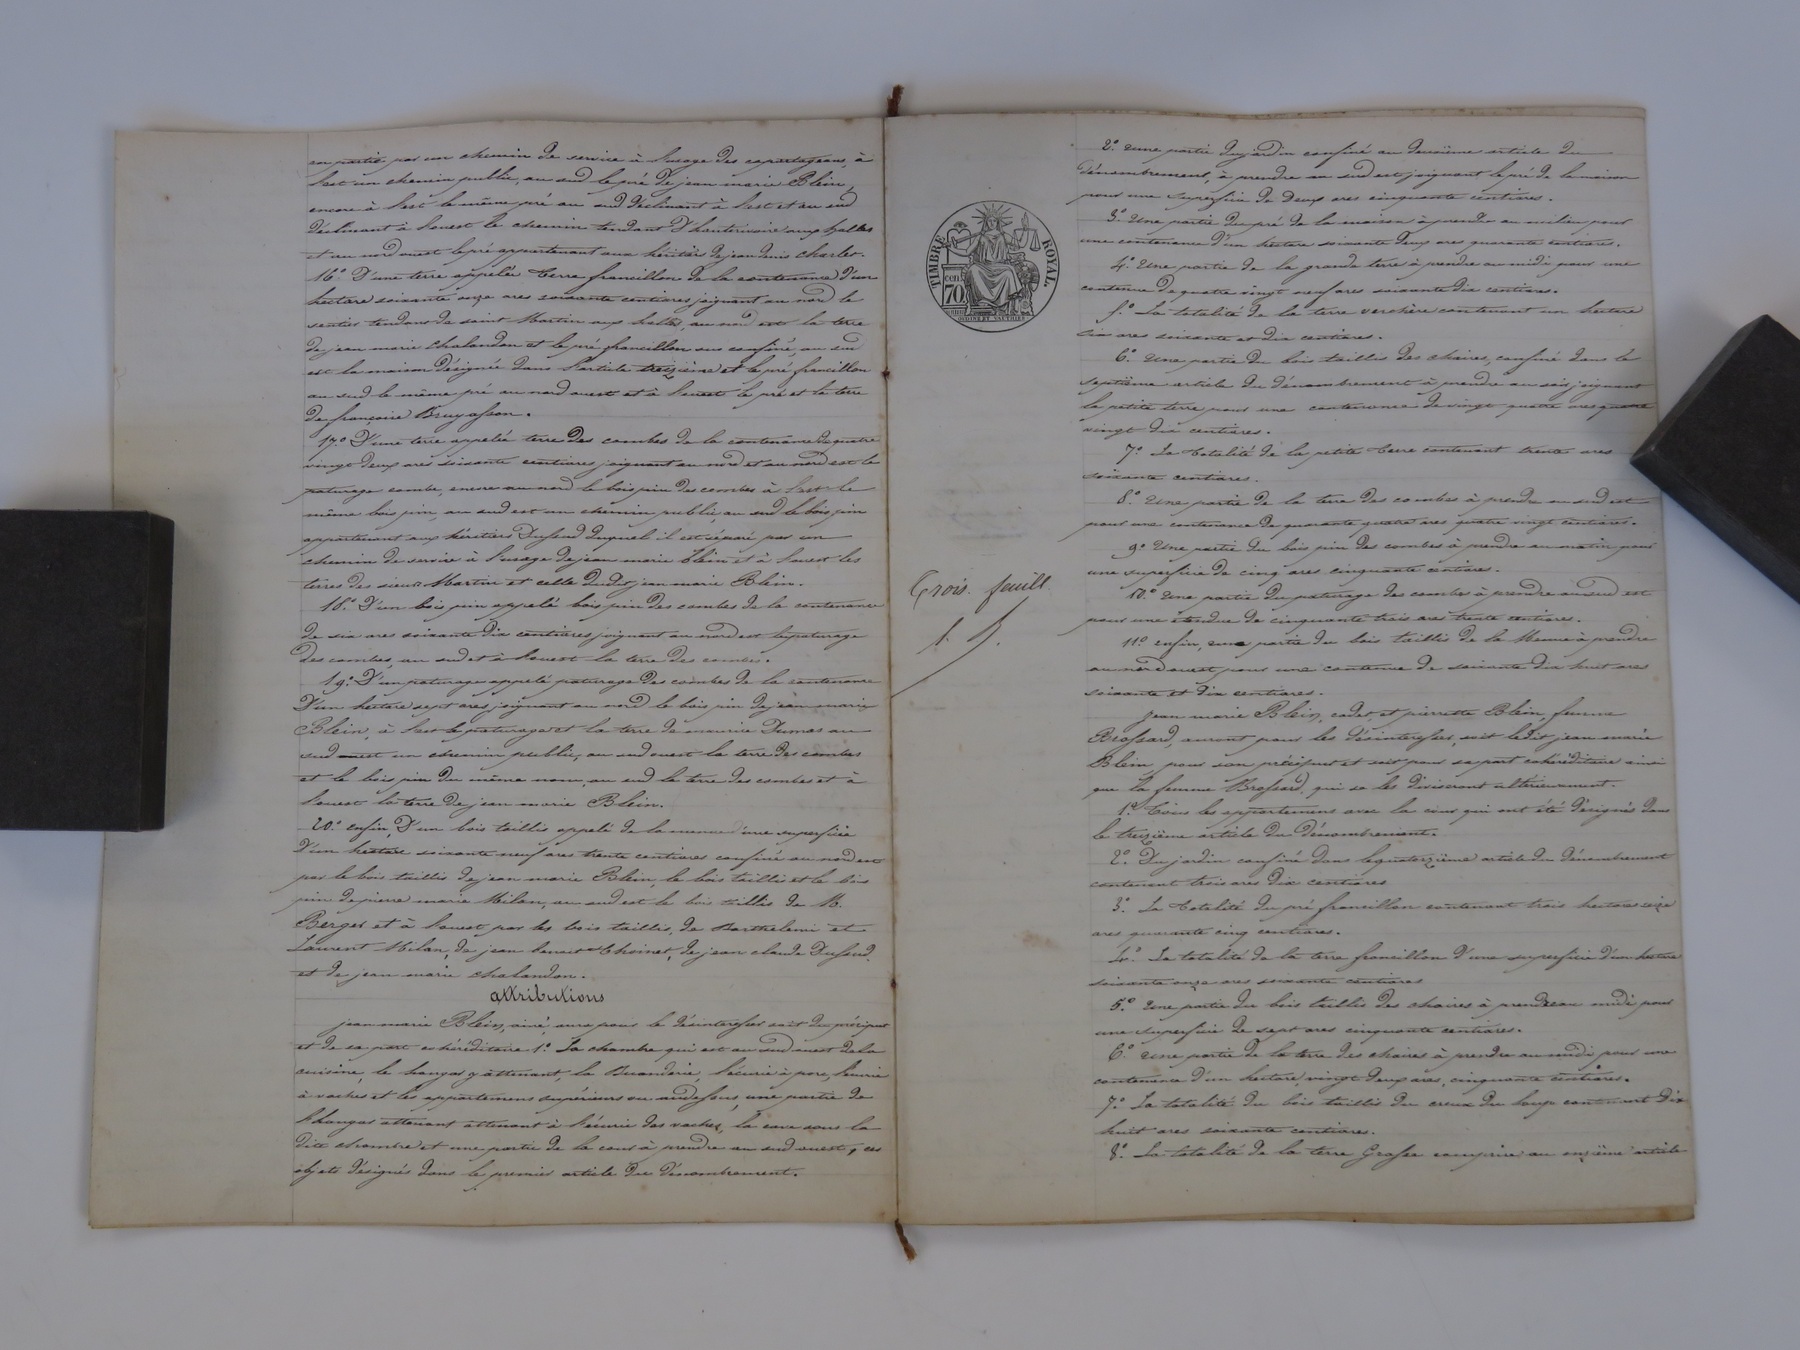 en partie par un chemin de service à l'usage des copartageans, à
l'est un chemin public, au sud le pré de jean marie Blein,
encore à l'est le même pré au sud déclinant à l'est et au sud
déclinant à l'ouest le chemin tendant d'hauterivoire aux halles
et au nord ouest le pré appartenant aux héritiers de jean denis Charles.
16.° D'une terre appelée terre francillon de la contenance d'un
hectare soixante onze ares soixante centiares joignant au nord le
sentier tendant de saint Martin aux halles, au nord est la terre
de jean marie Chalandon et le pré francillon sus confiné, au sud
est la maison désignée dans l'article treizième et le pré francillon
au sud le même pré au nord ouest et à l'ouest le pré et la terre
de françoise Bruyasson.
17.° D'une terre appelée terre Des combes de la contenance de quatre
vingt deux ares soixante centiares joignant au nord et au nord est le
paturage combe, encore au nord le bois pin des combes à l'est le
même bois pin, au sud est un chemin public, au sud le bois pin
appartenant aux héritiers Dufend duquel il est séparé par un
chemin de service à l'usage de jean marie Blein et à l'ouest les
terres des sieurs Martin et celle dudit jean marie Blein.
18.° D'un bois pin appelé bois pin des combes de la contenance
de six ares soixante dix centiares joignant au nord est le paturage
des combes, au sud et à l'ouest la terre des combes.
19.° D'un paturage appelé paturage des combes de la contenance
D'un hectare sept ares, joignant au nord le bois pin de jean marie
Blein, à l'est le paturage et la terre de maurice Dumas au
sud ouest un chemin public, au sud ouest la terre des combes
et le bois pin du même nom, au sud la terre des combes et à
l'ouest la terre de jean marie Blein.
20.° enfin, D'un bois taillis appelé de la meune d'une superficie
D'un hectare soixante neuf ares trente centiares confiné au nord est
par le bois taillis de jean marie Blein, le bois taillis et le bois
pin de pierre marie Milan, au sud est le bois taillis de M.
Berger et à l'ouest par les bois taillis, de Barthelemi et
Laurent Milan, de jean benoit Thoinet, de jean claude Dussurd
et de jean marie chalandon.
attributions
jean marie Blein, ainé, aura pour le désintéresser soit du préciput
et de sa part co héréditaire 1.° La chambre qui est au sud ouest de la
cuisine, le hangar y attenant, la Buanderie, l'écurie à porc, l'écurie
à vaches et les appartemens supérieurs ou au dessous, une partie de
l'hangar attenant attenant à l'écurie des vaches, la cave sous la
dite chambre et une partie de la cour à prendre au sud ouest, ces
objets désignés dans le premier article du dénombrement.
TIMBRE ROYAL.
cen.
70
Trois. feuill.
2.° Une partie du jardin confiné au deuxième article du
dénombrement, à prendre au sud est, joignant le pré de la maison
pour une superficie de Deux ares cinquante centiares.
3.° Une partie du pré de la maison à prendre au milieu pour
une contenance d'un hectare soixante deux ares quarante centiares.
4.° Une partie de la grande terre à prendre au midi pour une
contenue de quatre vingt neuf ares soixante dix centiares.
5.° La totalité de la terre verchère contenant un hectare
six ares soixante et dix centiares.
6.° Une partie du bois taillis des chaires, confiné dans le
septième article du dénombrement à prendre au soir joignant
la petite terre pour une contenance de vingt quatre ares quatre
vingt dix centiares.
7.° La totalité de la petite terre contenant trente ares
soixante centiares.
8.° Une partie de la terre des combes à prendre au sud est
pour une contenance de quarante quatre ares quatre vingt centiares.
9.° Une partie du bois pin des combes à prendre au matin pour
une superficie de cinq ares cinquante centiares.
10.° Une partie du paturage des combes à prendre au sud est
pour une étendue de cinquante trois ares trente centiares.
11.° enfin, une partie du bois taillis de la Meune à prendre
au nord ouest pour une contenue de soixante dix huit ares
soixante et dix centiares.
jean marie Blein, cadet, et pierrette Blein, femme
Brossard, auront pour les désintéresser, soit ledit jean marie
Blein pour son préciput et soit pour sa part cohéréditaire ainsi
que la femme Brossard, qui se les diviseront ultérieurement.
1.° Tous les appartemens avec la cour qui ont été désignés dans
le treizième article du dénombrement.
2.° Du jardin confiné dans le quatorzième article du dénombrement
contenant trois ares dix centiares
3.° La totalité du pré francillon contenant trois hectares seize
ares quarante cinq centiares.
4.° La totalité de la terre francillon d'une superficie d'un hectare
soixante onze ares soixante centiares
5.° Une partie du bois taillis des chaires à prendre au midi pour
une superficie de sept ares cinquante centiares.
6.° Une partie de la terre des chaires à prendre au midi pour une
contenance d'un hectare, vingt deux ares, cinquante centiares.
7.° La totalité du bois taillis du creux du loup contenant dix
huit ares soixante centiares.
8.° La totalité de la terre Grosse comprise au onzième article